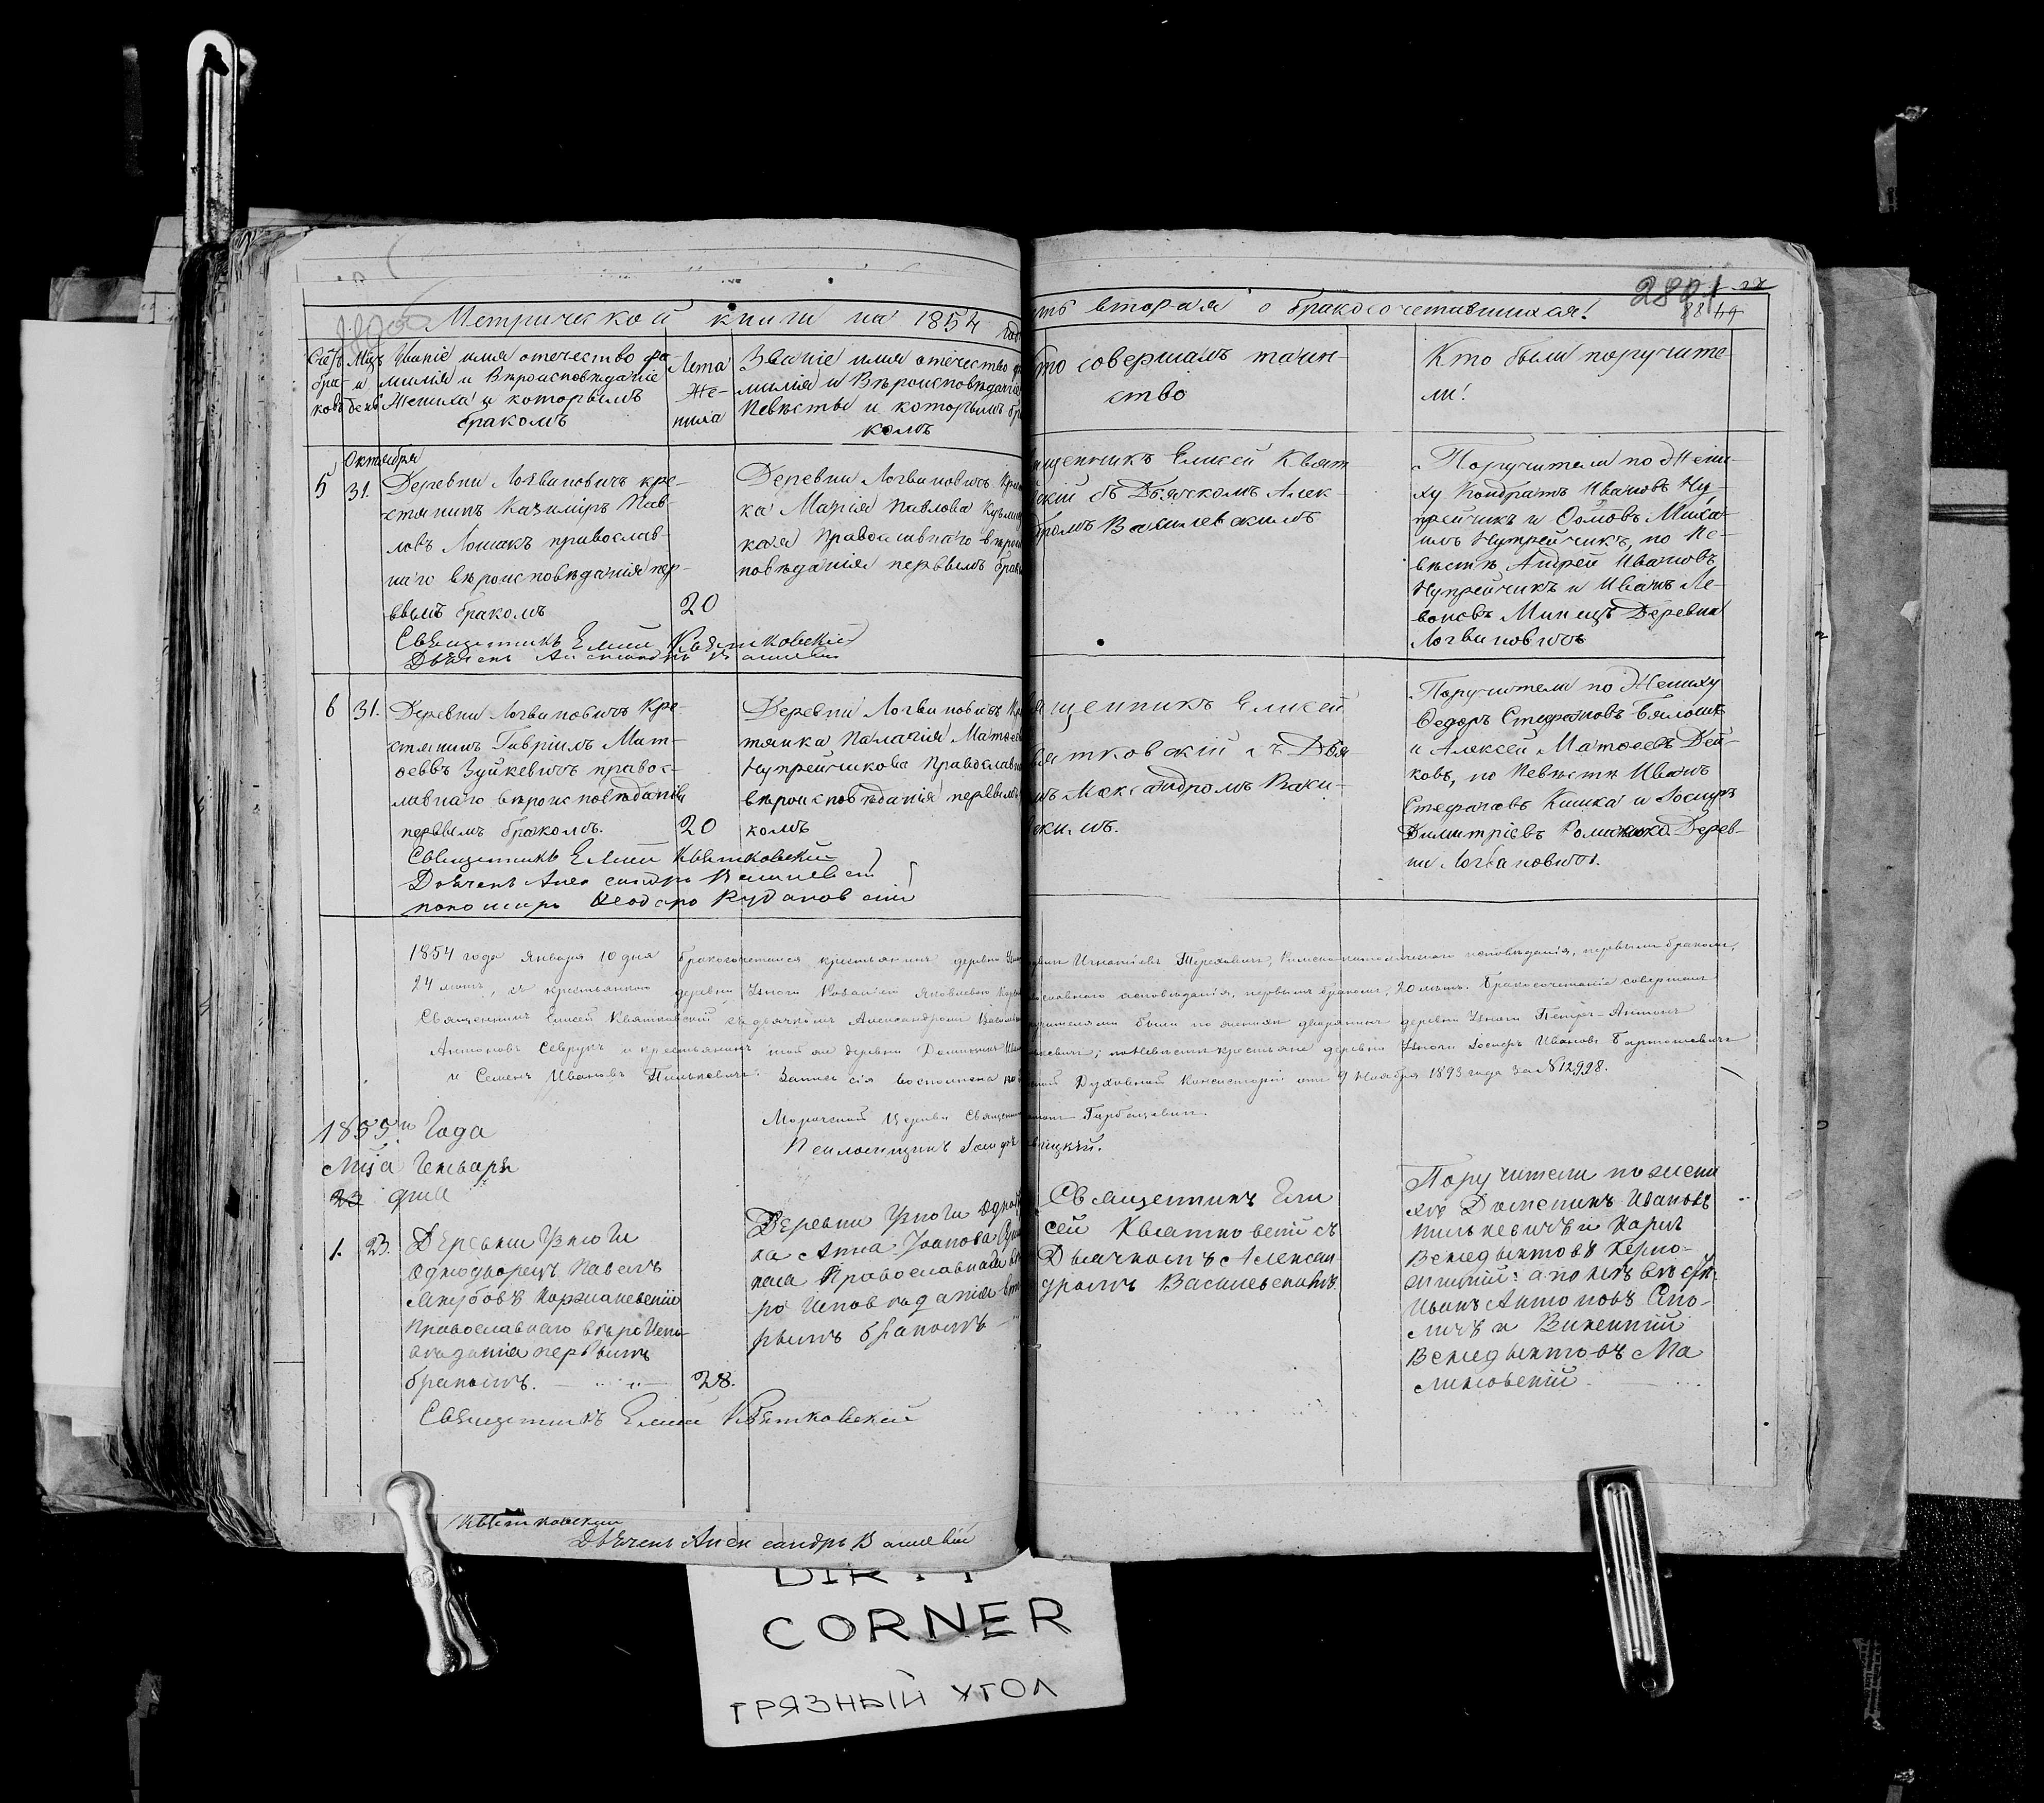 Метрической книги на 1854 год
ть вторая о бракосочетавшихся!
Счетъ бра- ковъ
Мцъ и день
Званіе имя отечество фа-
милія и Вѣроисповѣданіе
Жениха и которымъ
бракомъ
Лета
Же-
ниха
Званіе имя отечество
милія и Вѣроисповѣданіе
Невѣсты и которымъ бр
комъ
то совершалъ таин-
ство
Кто были поручите
ли!
5
Октября
31.
Деревни Логвиновичъ кре-
стянинъ Казиміръ Пав-
ловъ Лошакъ православ-
наго вѣроисповѣданія пер-
вымъ бракомъ
20
Священникъ Елисей Квятковский
Дьячекъ Александръ
Деревни Логвиновичъ
ка Марія Павлова
кая Православнаго вѣрои
повѣданія первымъ брак
ященникъ Елисей Квят
скій съ Дьячкомъ Алек-
дромъ Василевскимъ
Поручители по Жени-
ху Кондратъ Ивановъ Ну-
прейчикъ и Михаилъ Нупрейчикъ, по Не-
вѣстѣ Андрей Ивановъ
Нупрейчикъ и Иванъ Ле-
воновъ Минецъ Деревни
Логвиновичъ
6
31.
Деревни Логвиновичъ Кре-
стянинъ Гавріилъ Мат-
ѳеевъ Зуйкевичъ правос-
лавнаго вѣроисповѣданія
первымъ бракомъ.
20
Священникъ Елисей Квятковский
Дьячекъ Александръ
Деревни Логвиновичъ
тянка Палагія Матѳеев
Нупрейчикова Православн
вѣроисповѣданія первымъ
комъ
щенникъ Елисей
вятковскій съ Дья
мъ Александромъ Васи-
скимъ.
Поручители по Жениху
Ѳедоръ Стефановъ
и Алексей Матѳеевъ Дей-
ковъ, по Невѣстѣ Иванъ
Стефановъ Кишка и Іосифъ
Димитріевъ Дерев-
ни Логвиновичъ.
1854 года Января 10 дня бракосочетался крестьянинъ деревни
Игнатіевъ Тереховичъ, Римско-католическаго исповѣданія, первымъ бракомъ,
24 лѣтъ, съ крестьянкою деревни Узноги Яковлевою
ославнаго исповѣданія, первымъ бракомъ, 20 лѣтъ. Бракосочетаніе совершалъ
Священникъ Елисей Квятковскій съ дьячкомъ Александромъ
учителями были по женихѣ дворянинъ деревни Узноги Петръ-Антонъ
Антоновъ Севрукъ и крестьянинъ той же деревни Доминикъ
кевичъ; по Невѣстѣ крестьяне деревни Узноги Іосифъ Ивановъ Бартошевичъ
и Семенъ Ивановъ Пилькевичъ. Запись сія восполнена по
ской Духовной Консисторіи отъ 9 Ноября 1893 года за № 12998.
Морочской Церкви Священникъ Гербацевичъ.
Псаломщикъ Іосифъ
1855го Года
Мца Генваря
дня
1. 23.
Деревни Узноги
Однодворецъ Павелъ
Якубовъ
Православнаго вѣроиспо-
вѣданія первымъ
бракомъ.
28.
Священникъ Елисей Квятковский
Деревни Узноги Однод
ка Анна Іванова
кая Православнаго вѣ
роисповѣданія вто
рымъ бракомъ
Священникъ Ели
сей Квятковскій съ
Дьячкомъ Алексан
дромъ Василевскимъ.
Поручители по жени
хѣ Доменикъ Ивановъ
Пилькевичъ и Карлъ
Венедыктовъ
а по невѣсты
Иванъ Антоновъ
и Викентій
Венедыктовъ Ма
линовскій
Квятковский
Дьячекъ Александръ
CORNER
ГРЯЗНЫЙ УГОЛ